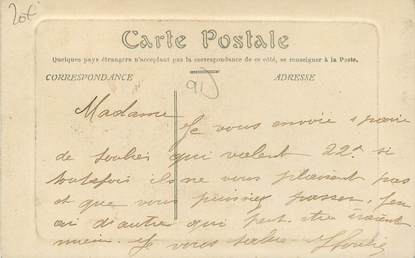 20€
Carte Postale
Quelques pays étrangers n'acceptant pas la correspondance de ce côté, se renseigner à la Poste.
CORRESPONDANCE
ADRESSE
Madame
Je vous envoie 1 paire
de souliers qui valent 22 si
toutefois ils ne vous plairaient pas
et que vous puissiez passer, j'en
ai d'autre qui peut-être iraient
mieux. Je vous salue